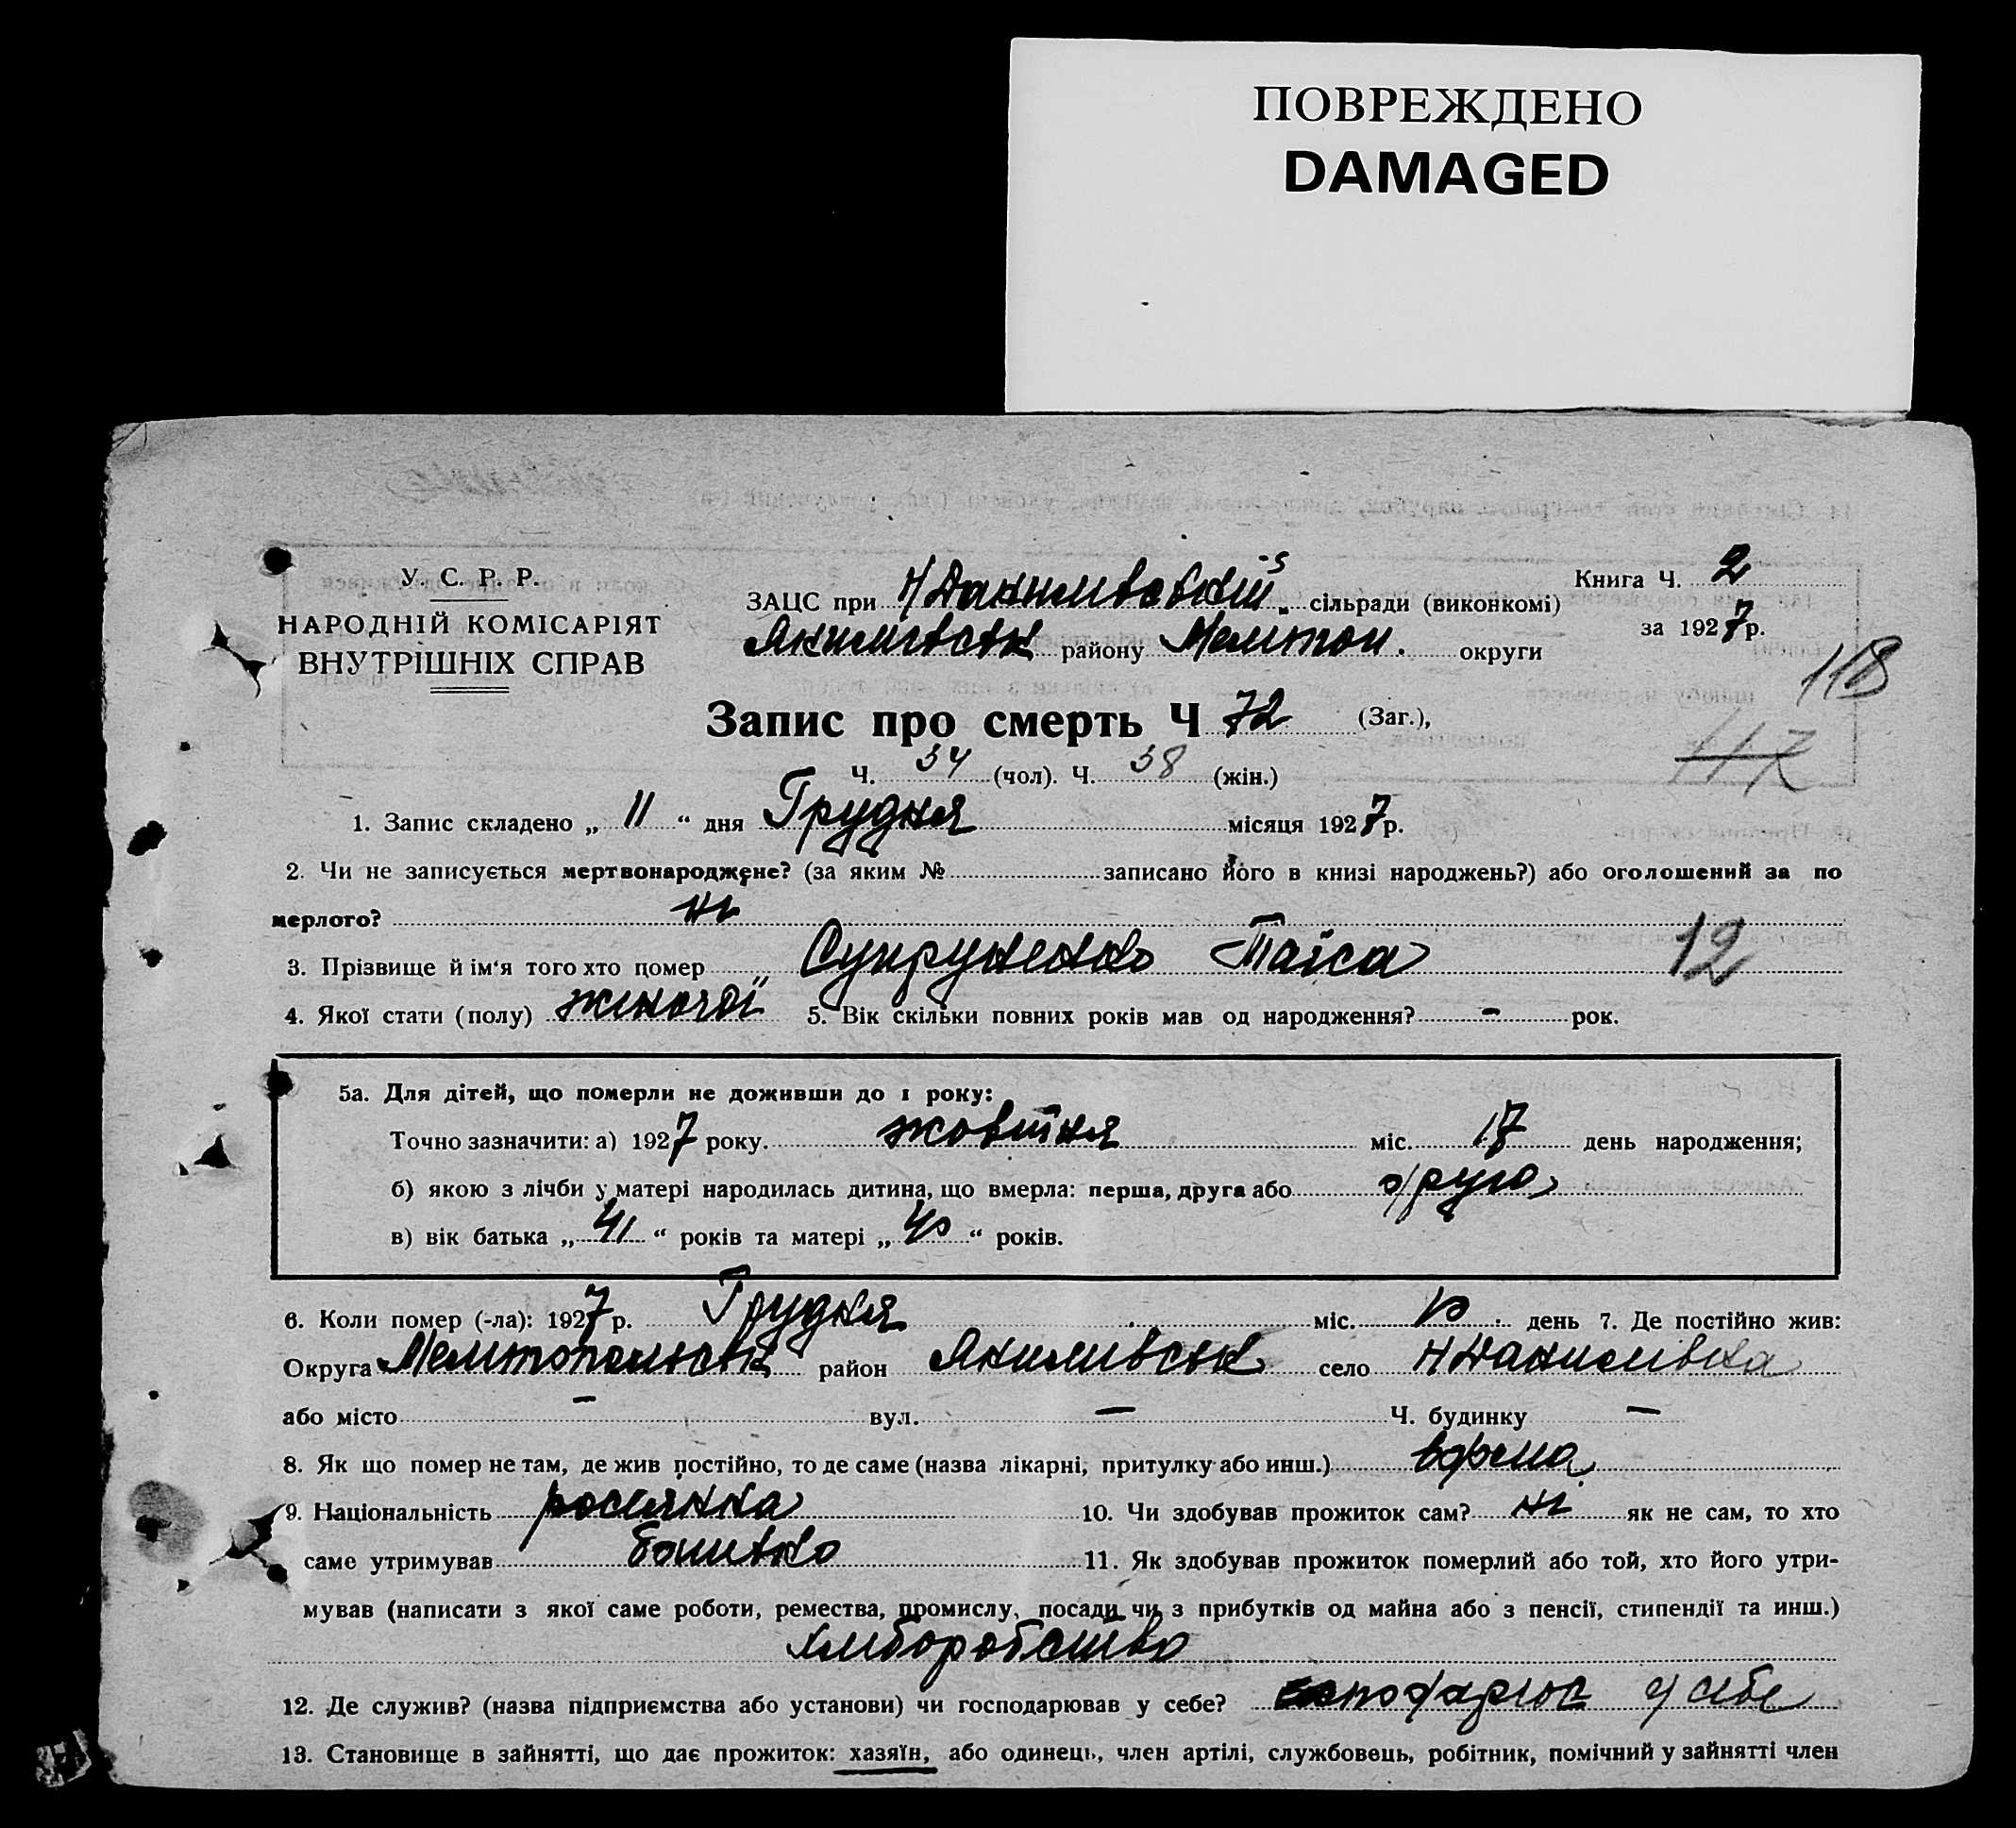 ПОВРЕЖДЕНО
DAMAGED
У. С. Р. Р.
НАРОДНІЙ КОМІСАРІЯТ
ВНУТРІШНІХ СПРАВ
ЗАЦС при Н Данилівській сільради (виконкомі)
Якимівськ району Мелітоп. округи
Книга Ч. 2
за 1927 р.
118
117
Запис про смерть Ч 72 (Заг.),
Ч. 34 (чол). Ч. 38 (жін.)
1. Запис складено „ 11 “ дня Грудня місяця 1927 р.
2. Чи не записується мертвонароджене? (за яким № записано його в книзі народжень?) або оголошений за по
мерлого? ні
3. Прізвище й ім‘я того хто помер Супруненко Таїса 12
4. Якої стати (полу) жіночої 5. Вік скільки повних років мав од народження? - рок.
5а. Для дітей, що померли не доживши до 1 року:
Точно зазначити: а) 1927 року. жовтня міс. 17 день народження;
б) якою з лічби у матері народилась дитина, що вмерла: перша, друга або
в) вік батька „ 41 “ років та матері „ 40 “ років.
6. Коли помер (-ла): 1927 р. Грудня міс. 10 день 7. Де постійно жив:
Округа Мелітопольськ район Якимівськ село Н Данилівка
або місто — вул. — Ч. будинку —
8. Як що помер не там, де жив постійно, то де саме (назва лікарні, притулку або инш.) вдома
9. Національність росіянка 10. Чи здобував прожиток сам? ні як не сам, то хто
саме утримував батько 11. Як здобував прожиток померлий або той, хто його утри-
мував (написати з якої саме роботи, ремества, промислу, посади чи з прибутків од майна або з пенсії, стипендії та инш.)
хліборобство
12. Де служив? (назва підприємства або установи) чи господарював у себе? у себе
13. Становище в зайнятті, що дає прожиток: хазяїн, або одинець, член артілі, службовець, робітник, помічний у зайнятті член